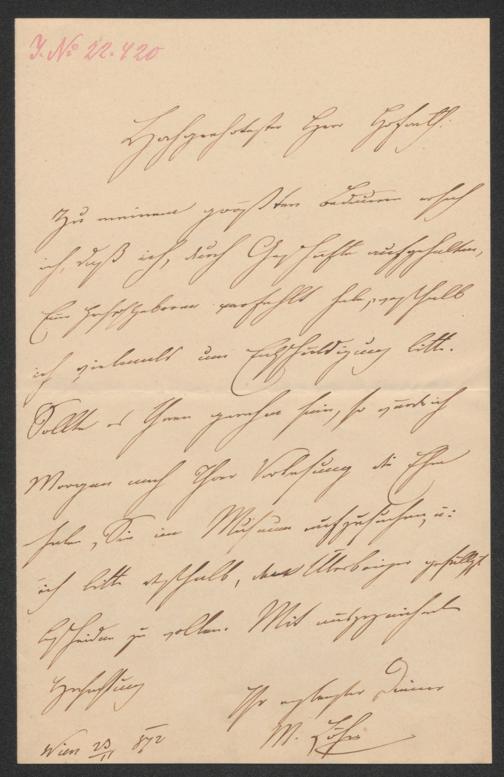 I. No 22.420
Hochgeehrtester Herr Hofrath!
Zu meinem größten Bedauern ersah
ich, daß ich, durch Geschäfte aufgehalten,
Euer Hochgeboren verfehlt habe, weshalb
ich vielmals um Entschuldigung bitte.
Sollte es Ihnen genehm sein, so würde ich
Morgen nach Ihrer Vorlesung die Ehre
haben, Sie im Museum aufzusuchen, u:
ich bitte deshalb, Überbringer gefälligst
bescheiden zu wollen. Mit ausgezeichneter
Hochachtung
Ihr ergebenster Diener
M.
Wien 23/II 872